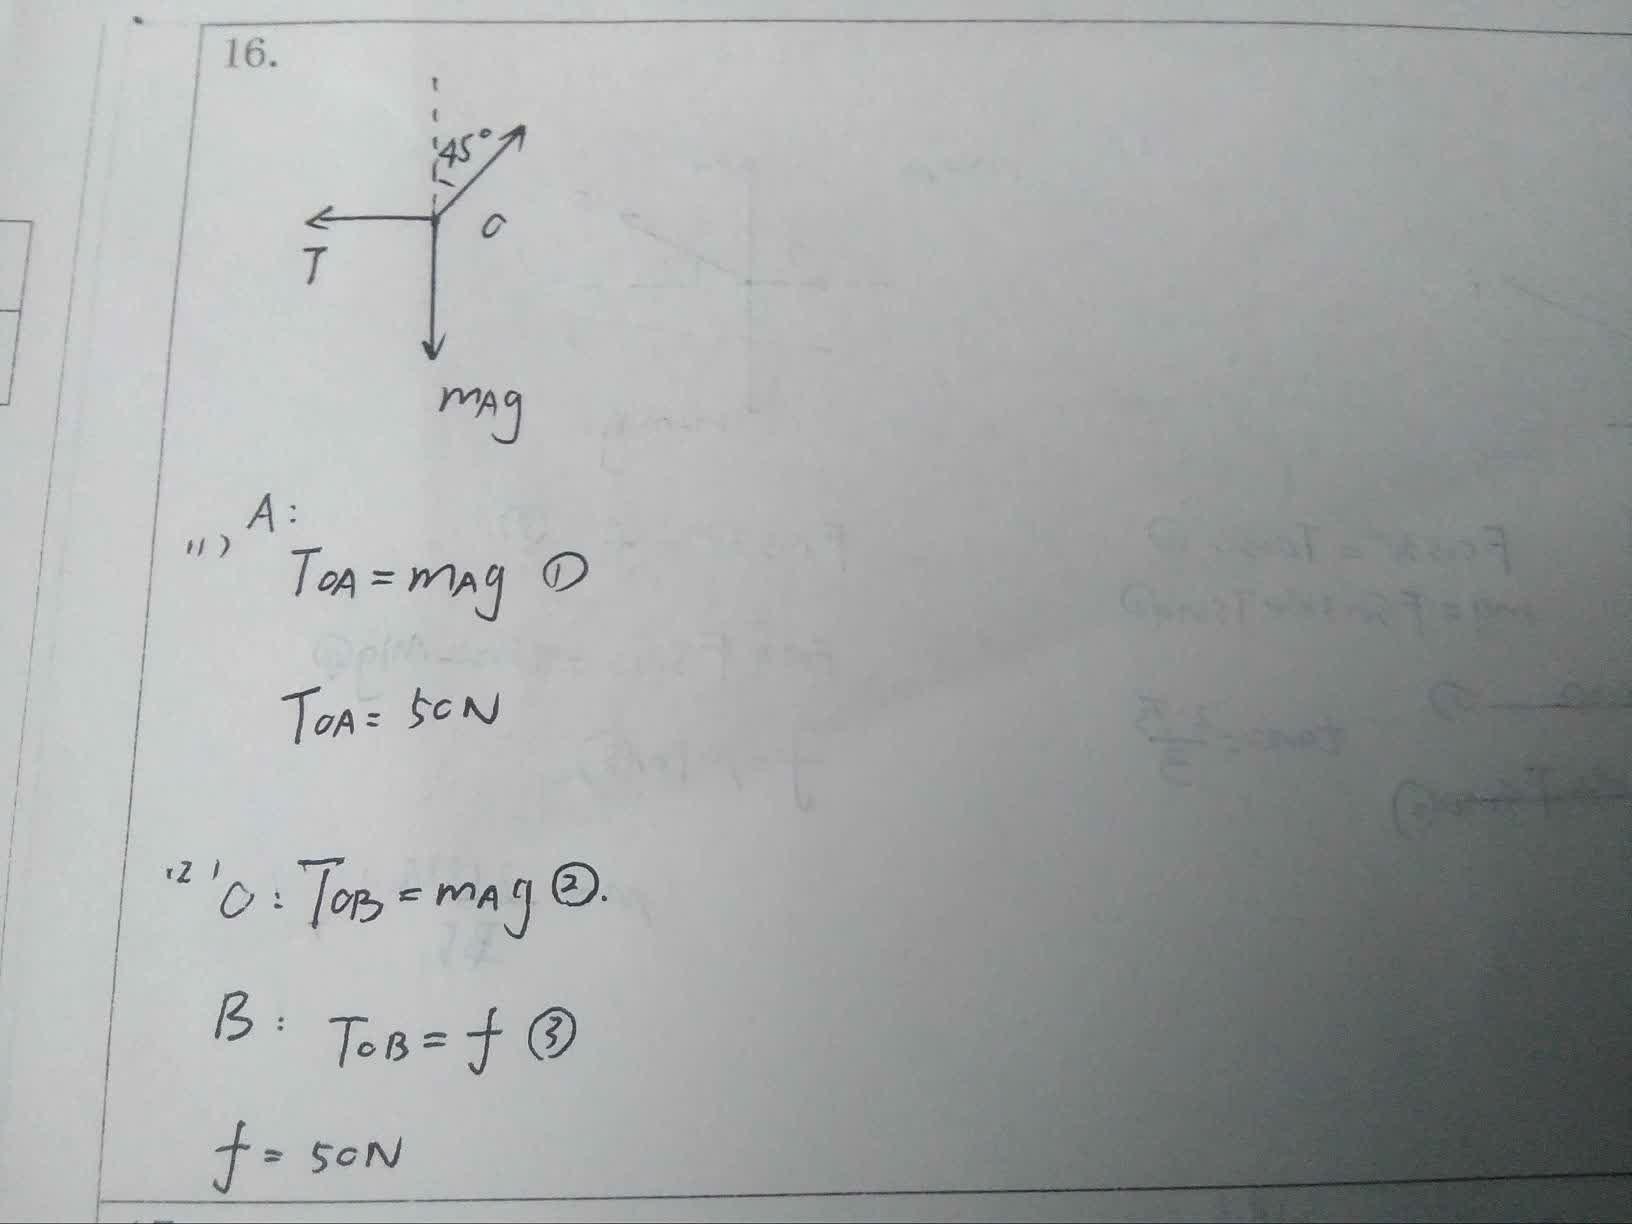 16.
45°
O
T
mAg
(1) A:
TOA = mAg ①
TOA = 50N
(2) O: TOB = mAg ②.
B: TOB = f ③
f = 50N